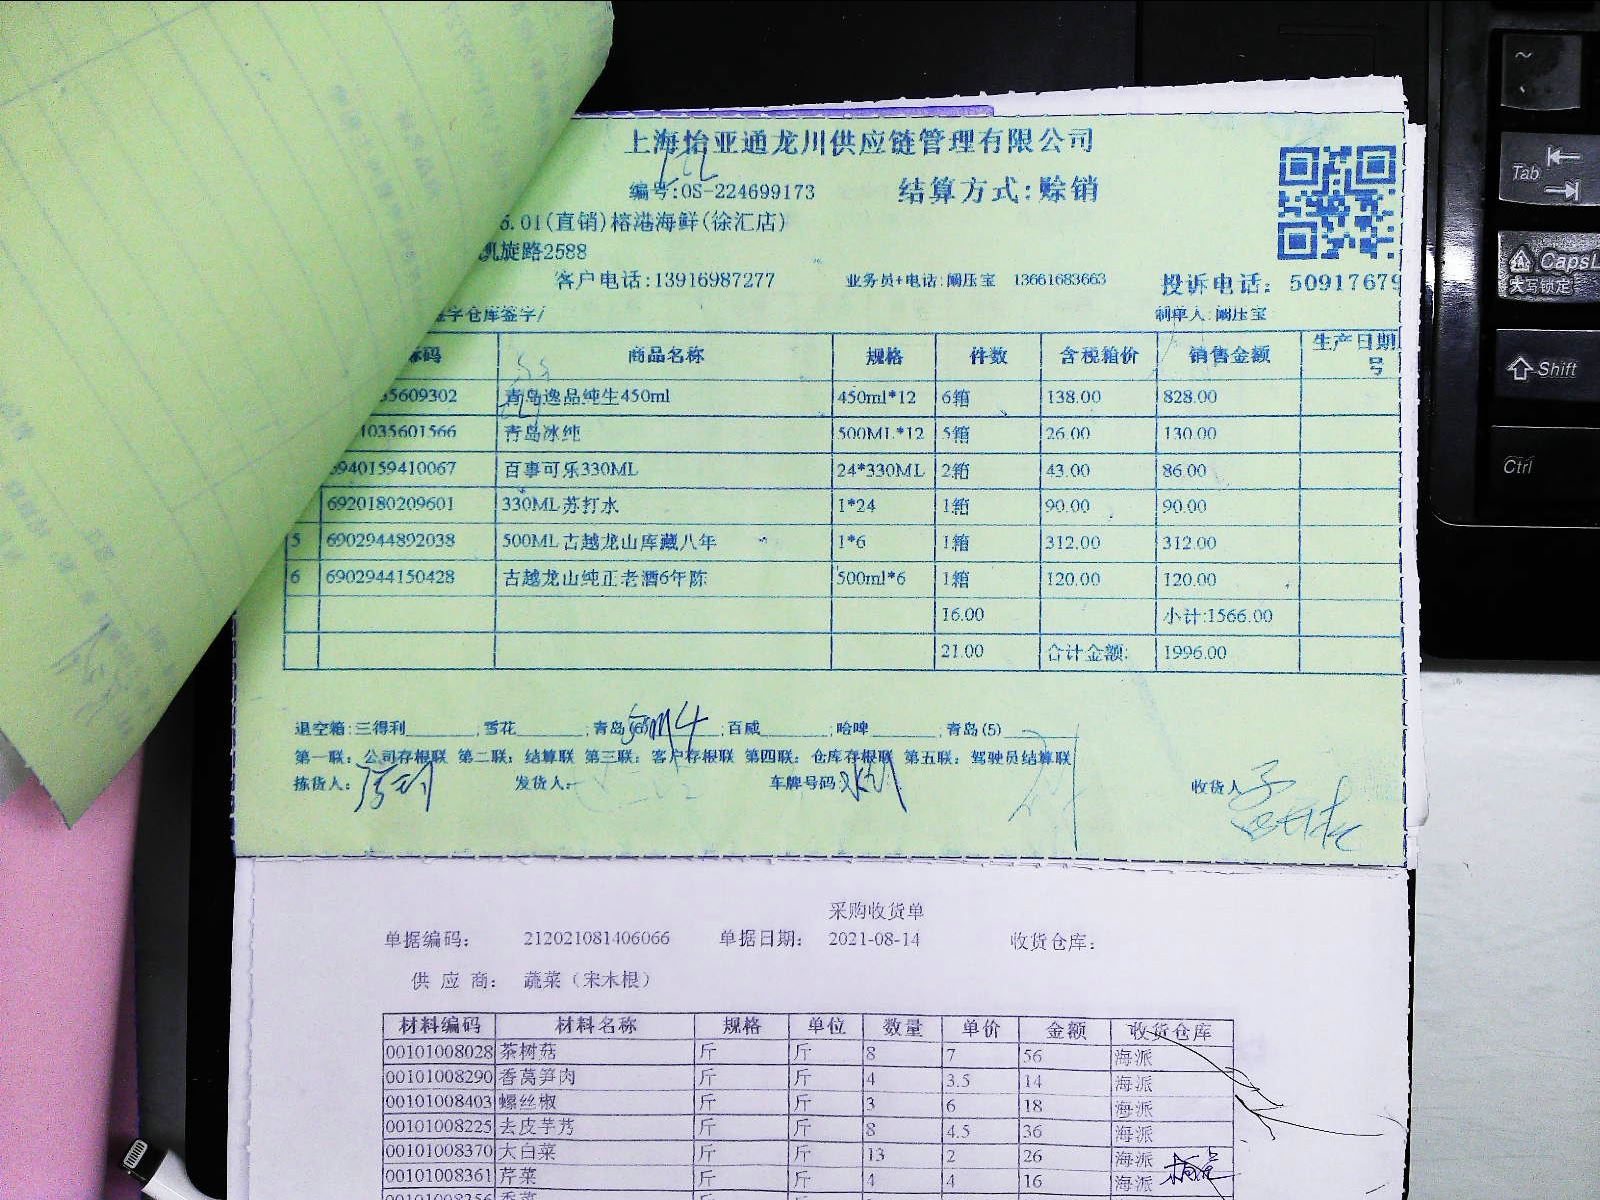 上海怡亚通龙川供应链管理有限公司
编号:OS-224699173 结算方式:赊销
6.01(直销)榕港海鲜(徐汇店)
凯旋路2588
客户电话:13916987277 业务员+电话:阚压宝 13661683663 投诉电话: 50917679
签字仓库签字/ 制单人:阚压宝
条码 商品名称 规格 件数 含税箱价 销售金额 生产日期
号
35609302 青岛逸品纯生450ml 450ml*12 6箱 138.00 828.00
1035601566 青岛冰纯 500ML*12 5箱 26.00 130.00
6940159410067 百事可乐330ML 24*330ML 2箱 43.00 86.00
6920180209601 330ML苏打水 1*24 1箱 90.00 90.00
5 6902944892038 500ML古越龙山库藏八年 1*6 1箱 312.00 312.00
6 6902944150428 古越龙山纯正老酒6年陈 500ml*6 1箱 120.00 120.00
16.00 小计:1566.00
21.00 合计金额: 1996.00
退空箱:三得利________;雪花________;青岛(6) ;百威________;哈啤________;青岛(5)________
第一联: 公司存根联 第二联: 结算联 第三联: 客户存根联 第四联: 仓库存根联 第五联: 驾驶员结算联
拣货人: 发货人: 车牌号码 收货人
采购收货单
单据编码: 212021081406066 单据日期: 2021-08-14 收货仓库:
供 应 商: 蔬菜（宋木根）
材料编码 材料名称 规格 单位 数量 单价 金额 收货仓库
00101008028 茶树菇 斤 斤 8 7 56 海派
00101008290 香莴笋肉 斤 斤 4 3.5 14 海派
00101008403 螺丝椒 斤 斤 3 6 18 海派
00101008225 去皮芋艿 斤 斤 8 4.5 36 海派
00101008370 大白菜 斤 斤 13 2 26 海派
00101008361 芹菜 斤 斤 4 4 16 海派
~
Tab
CapsL
大写锁定
Shift
Ctrl